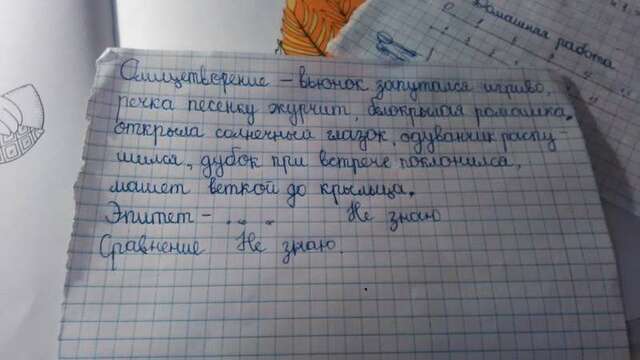 Домашняя работа
Олицетворение – вьюнок запутался игриво,
речка песенку журчит, белокрылая ромашка
открыла солнечный глазок, одуванчик распу-
шился, дубок при встрече поклонился,
машет веткой до крыльца.
Эпитет – . .. .. Не знаю
Сравнение Не знаю.